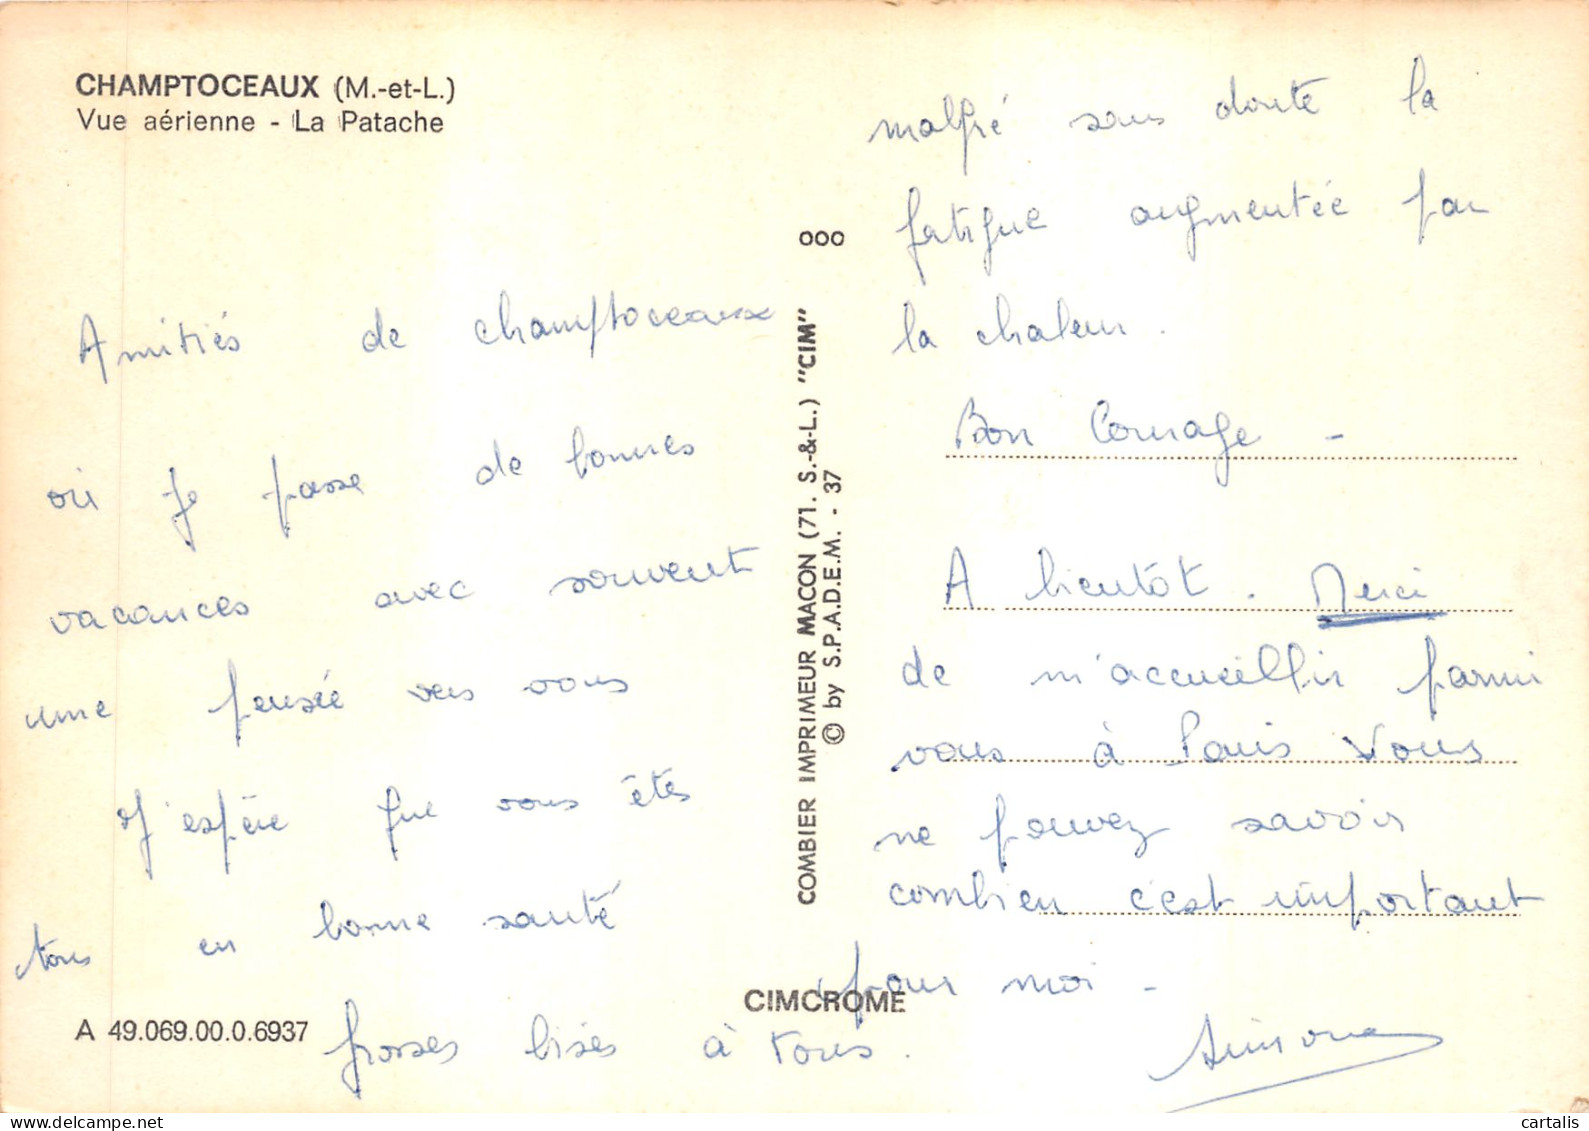 CHAMPTOCEAUX (M.-et-L.)
Vue aérienne - La Patache
Amitiés de champtoceaux
où je passe de bonnes
vacances avec souvent
une pensée vers vous
J'espère que vous êtes
tous en bonne santé
malgré sans doute la
fatigue augmentée par
la chaleur.
Bon Courage -
A bientôt. Merci
de m'accueillir parmi
vous à Paris Vous
ne pouvez savoir
combien c'est important
pour moi -
grosses bises à tous.
Simone
A 49.069.00.0.6937
CIMCROME
COMBIER IMPRIMEUR MACON (71. S.-&-L.) "CIM"
© by S.P.A.D.E.M. - 37
000
cartalis